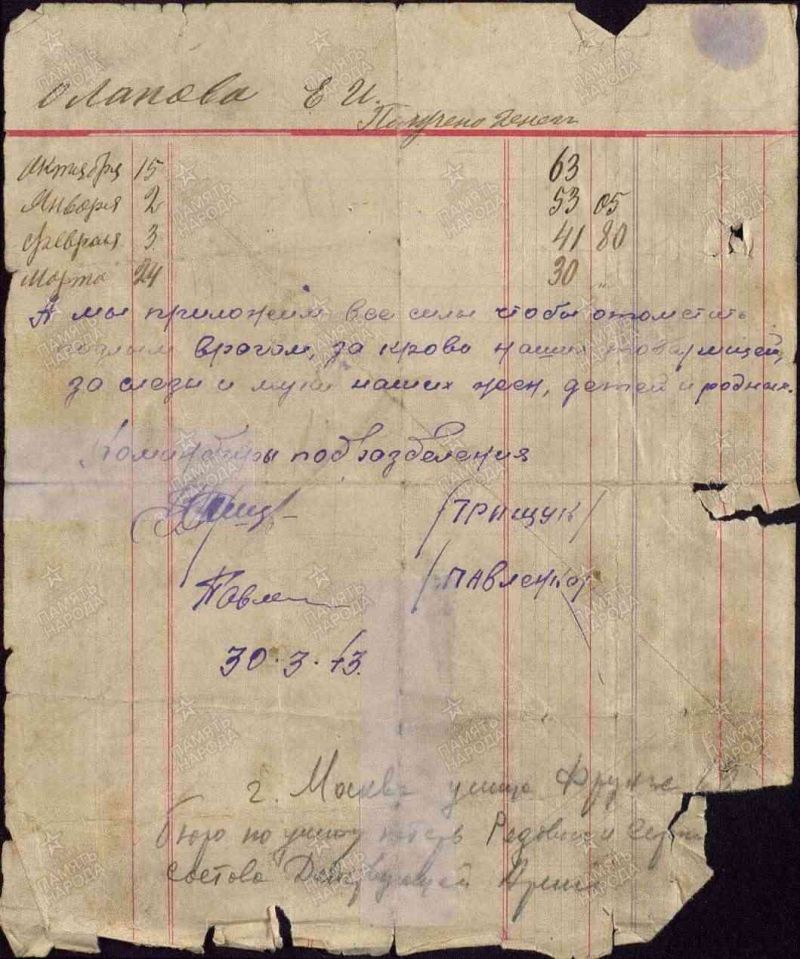 Оlапова Е И.
Получено денег
Октября 15 63
Января 2 53 05
Февраля 3 41 80
Марта 24 30 "
А мы приложим все силы чтобы отомстить
подлым врагом, за крово наших товарищей,
за слези и муки наших жен, детей и родных.
Командиры подразделения
/ГРИЩУК/
Павле /ПАВЛЕНКО/
30.3.43.
г. Москва улица Фрунзе
бюро по учету потерь Рядовых и Серж
состова Действующей Армий